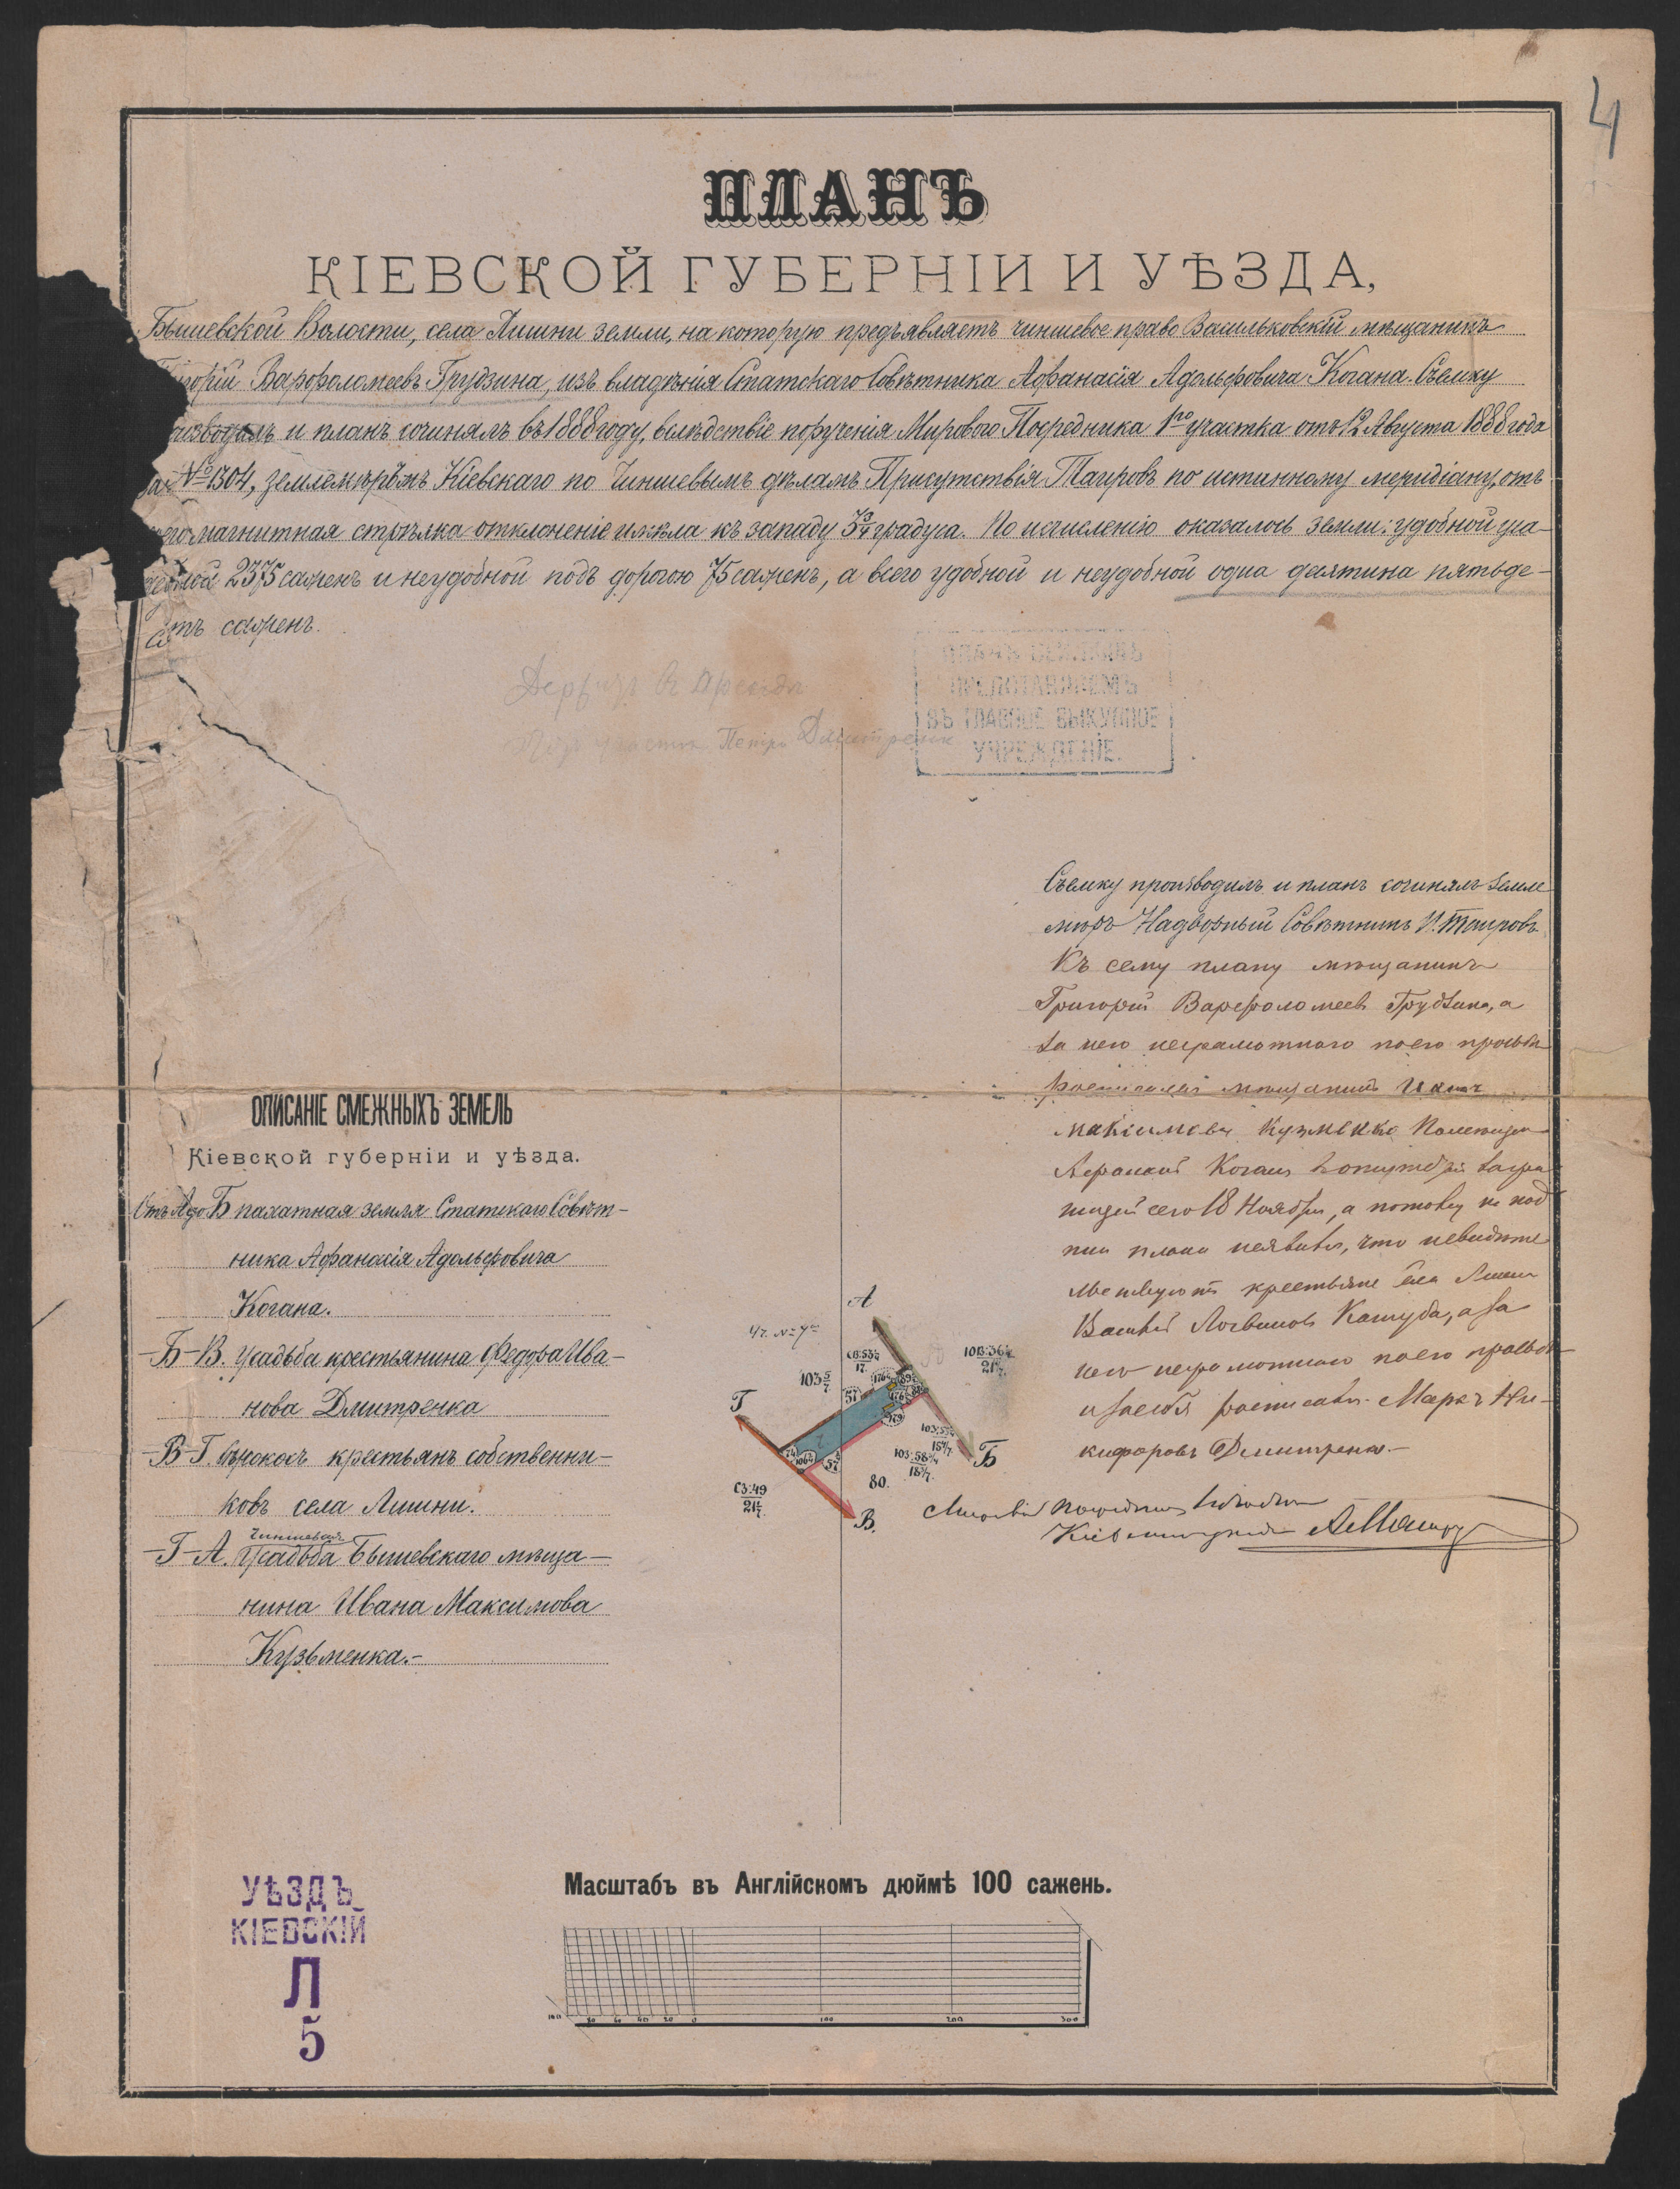 4
ПЛАНЪ
КІЕВСКОЙ ГУБЕРНІИ И УѢЗДА,
Бышевской Волости, села Лишни земли, на которую предъявляетъ чиншевое право Васильковскій мѣщанинъ
горій Варфоломеевъ Грудзина, изъ владѣнія Статскаго Совѣтника Афанасія Адольфовича Когана. Съемку
изводилъ и планъ сочинялъ въ 1888 году, вслѣдствіе порученія Мирового Посредника 1го участка отъ 12 Августа 1888 года
за № 1304, землемѣромъ Кіевскаго по Чиншевымъ дѣламъ Присутствія Таировъ по истинному меридіану, отъ
его магнитная стрѣлка отклоненіе имѣла къ западу 3¾ градуса. По исчисленію оказалось земли: удобной уса-
дебной 2375 сажень и неудобной подъ дорогою 75 сажень, а всего удобной и неудобной одна десятина пятьде-
сятъ сажень.
ПЛАНЪ СЕЙ
ПРЕДСТАВЛЯЕМЪ
ВЪ ГЛАВНОЕ ВЫКУПНОЕ
УЧРЕЖДЕНІЕ.
Петръ Дмитренк
Съемку производилъ и планъ сочинялъ земле
мѣръ Надворный Совѣтникъ И. Таировъ
Къ сему плану мѣщанинъ
Григорій Варфоломеевъ Грудзина, а
за него неграмотнаго по его просьбѣ
росписался мѣщанинъ Иванъ
Максимовъ Кузменко
Афанасій Коганъ
сего 18 Ноября, а потому
плана неявился, что
крестьяне села Лишни
Василій Логвиновъ Кашуба, а за
него неграмотнаго по его просьбѣ
росписался Маркъ Ни-
кифоровъ Дмитренко.-
Мировой Посредникъ
ОПИСАНІЕ СМЕЖНЫХЪ ЗЕМЕЛЬ
Кіевской губерніи и уѣзда.
Отъ А до Б пахатная земля Статскаго Совѣт-
ника Афанасія Адольфовича
Когана.
-Б-В. Усадьба крестьянина Федора Ива-
нова Дмитренка
-В-Г. сѣнокосъ крестьянъ собственни-
ковъ села Лишни.
Чиншевая
-Г-А. Усадьба Бышевскаго мѣща-
нина Ивана Максимова
Кузьменка.-
А
Г
Б
В.
103 5/7
СЗ:49
80.
УѢЗДЪ
КІЕВСКІЙ
Л
5
Масштабъ въ Англійскомъ дюймѣ 100 сажень.
100 80 60 40 20 0 100 200 300